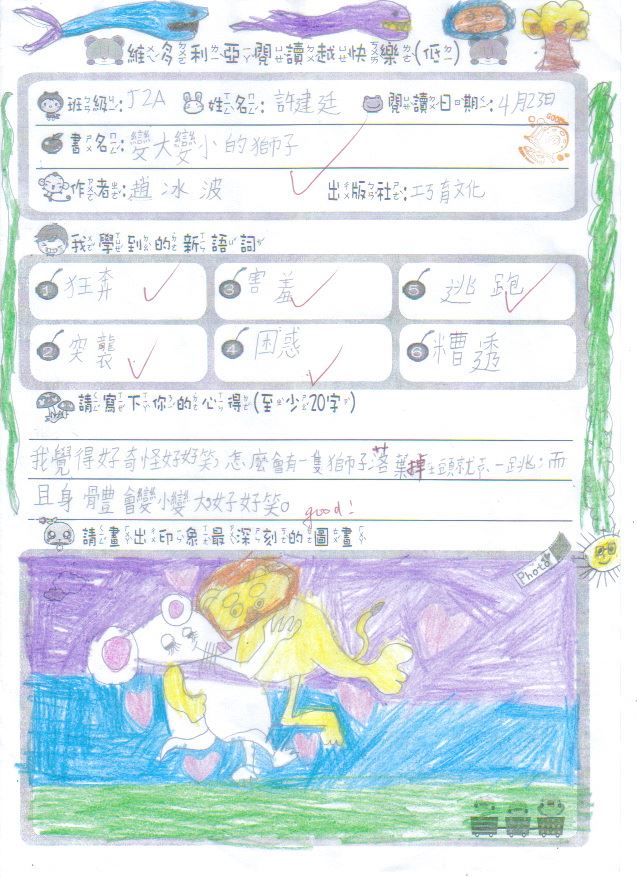 維多利亞閱讀越快樂(低)
班級:J2A 姓名:許建廷 閱讀日期:4月23日
書名:變大變小的獅子
作者:趙冰波 出版社:巧育文化
我學到的新語詞
1 狂奔 3 害羞 5 逃跑
2 突襲 4 困惑 6 糟透
請寫下你的心得(至少20字)
我覺得好奇怪好好笑,怎麼會有一隻獅子落葉掉 頭就 一跳,而
且身體會變小變大好好笑。 good!
請畫出印象最深刻的圖畫
Photo